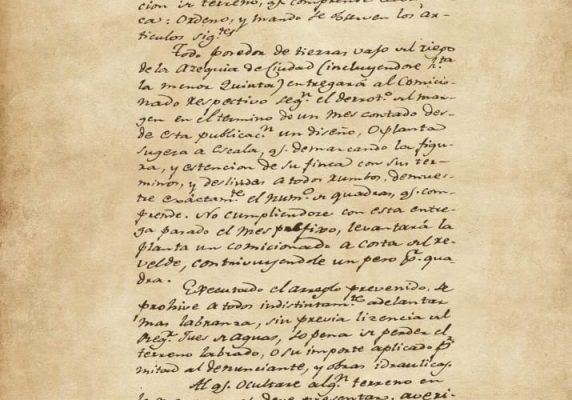 cion de terreno, qe. comprende
ca: Ordeno, y mando se observen los ar-
ticulos sigtes
Todo poseedor de tierras vajo del riego
de la Azequia de Ciudad (incluyendose hta.
la menor Quinta) entregará al Comicio-
nado respectivo segn. el derrotº. del mar-
gen en el termino de un mes contado des-
de esta publicacn. un diseño, O planta
sugeta a Escala, qe. demarcando la figu-
ra, y estencion de su finca con sus ter-
minos, y deslindes a todos rumbos, demues-
tre exáctamte. el numº. de quadras, qe. com-
prende. No cumpliendose con esta entre-
ga pasado el mes prefixo, levantará la
planta un comicionado a costa del re-
velde, contrivuyendole un peso pr. qua-
dra.
Executado el arreglo prevenido. Se
prohive a todos indistintamte. adelantar
mas labranza, sin previa lizencia del
Juez de aguas, so pena de perder el
terreno labrado, O su importe aplicado pr.
mitad al denunciante, y obras idraulicas.
Al qe. Ocultare algn. terreno en
presentar, averi-